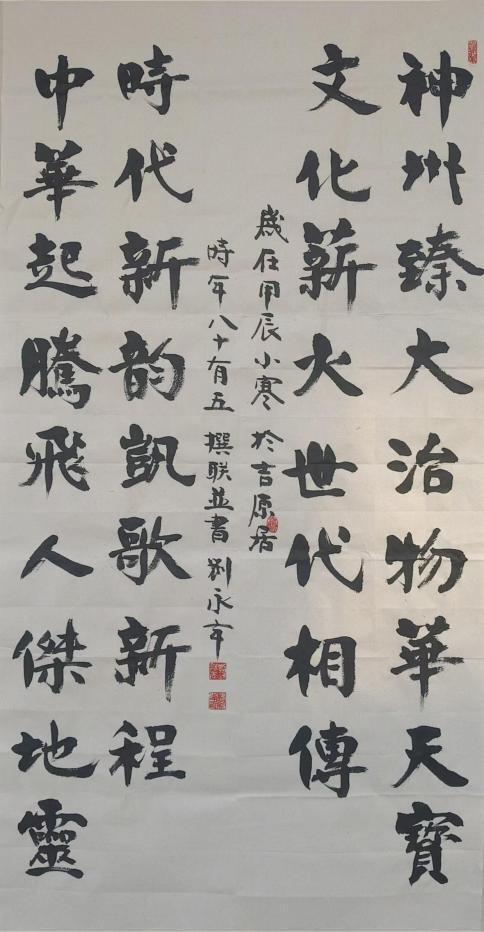 神州臻大治物華天寶
文化薪火世代相傳
中華起騰飛人傑地靈
時代新韵凱歌新程
歲在甲辰小寒於吉原居
時年八十有五撰联並書劉永年